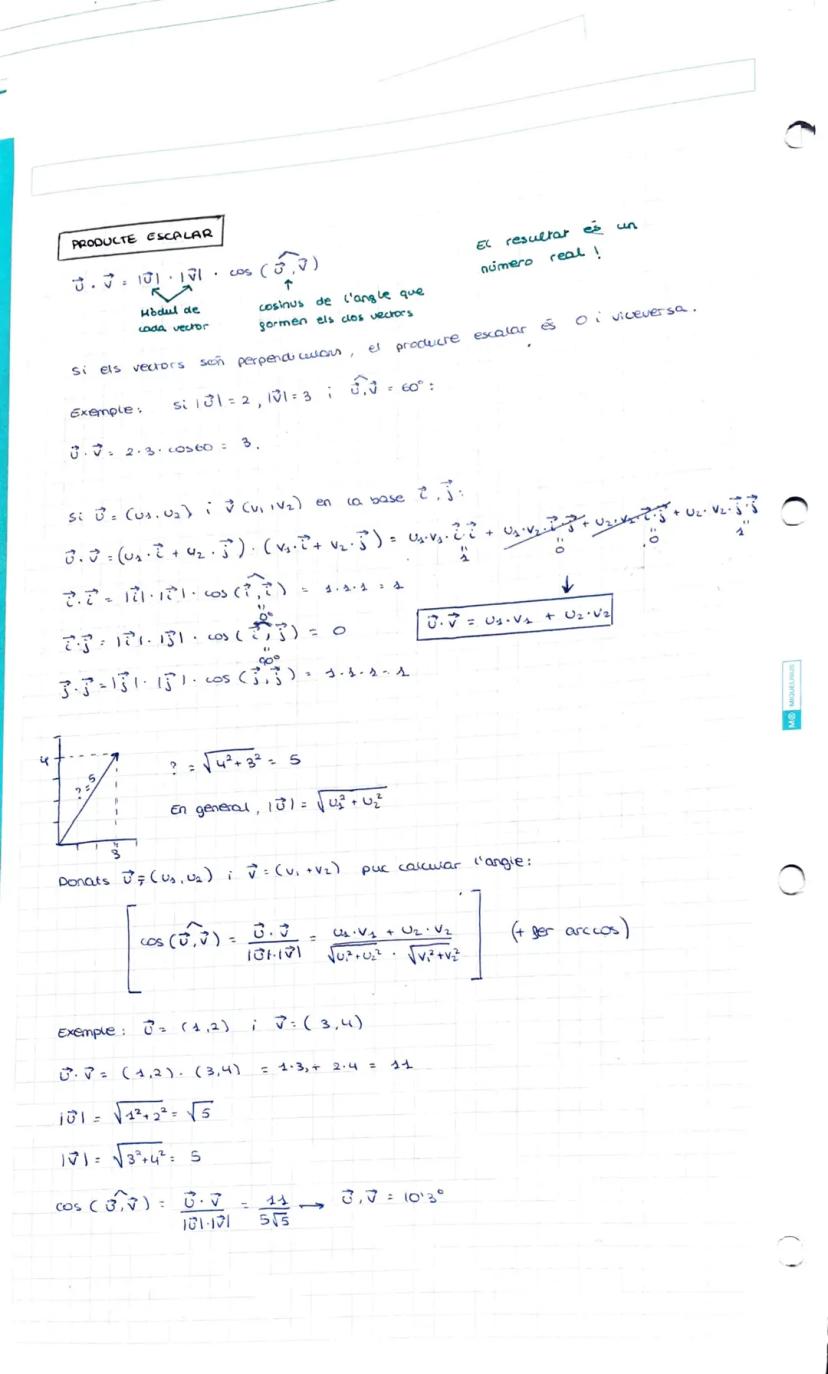 PRODUCTE ESCALAR
El resultat és un
número real!
u⃗ · v⃗ = |u⃗| · |v⃗| · cos (u⃗,v⃗)
Mòdul de
cada vector
cosinus de l'angle que
formen els dos vectors
Si els vectors són perpendiculars, el producte escalar és 0 i viceversa.
Exemple: si |u⃗| = 2, |v⃗| = 3 i u⃗,v⃗ = 60°:
u⃗ · v⃗ = 2·3·cos60 = 3.
Si u⃗ = (u₁,u₂) i v⃗ (v₁,v₂) en la base i⃗, j⃗:
u⃗ · v⃗ = (u₁·i⃗ + u₂·j⃗) · (v₁·i⃗ + v₂·j⃗) = u₁·v₁·i⃗·i⃗ + u₁·v₂·i⃗·j⃗ + u₂·v₁·i⃗·j⃗ + u₂·v₂·j⃗·j⃗
" 1 " 0 " 0 " 1
i⃗·i⃗ = |i⃗|·|i⃗|·cos (i⃗,i⃗) = 1·1·1 = 1
" 0°
u⃗·v⃗ = u₁·v₁ + u₂·v₂
i⃗·j⃗ = |i⃗|·|j⃗|·cos (i⃗,j⃗) = 0
" 90°
j⃗·j⃗ = |j⃗|·|j⃗|·cos (j⃗,j⃗) = 1·1·1 = 1
4
? = 5
3
? = √4²+3² = 5
En general, |u⃗| = √u₁² + u₂²
Donats u⃗ = (u₁,u₂) i v⃗ = (v₁+v₂) puc calcular l'angle:
cos (u⃗,v⃗) = u⃗·v⃗ / |u⃗|·|v⃗| = u₁·v₁ + u₂·v₂ / √u₁²+u₂² · √v₁²+v₂²
(+ fer arccos)
Exemple: u⃗ = (1,2) i v⃗ = (3,4)
u⃗·v⃗ = (1,2)·(3,4) = 1·3,+ 2·4 = 11
|u⃗| = √1²+2² = √5
|v⃗| = √3²+4² = 5
cos (u⃗,v⃗) = u⃗·v⃗ / |u⃗|·|v⃗| = 11 / 5√5 → u⃗,v⃗ = 10'3°
MR MIQUELRIUS